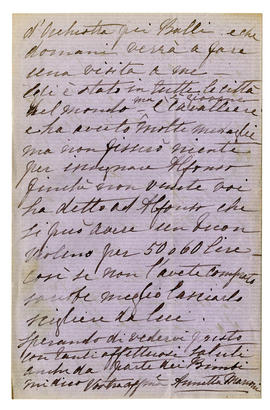 d'orchestra pei Balli e che
domani verrà a fare
una visita a me
Egli è stato in tutte le città
del mondo ma è giovane
è cavalliere
e ha avuto molte medaglie
ma non fissero niente
per insegnare Alfonso
finchè non venite voi
ha detto ad Alfonso che
si può avere un buon
violino per 50 o 60 lire
così se non l'avete comprato
sarebbe meglio lasciarlo
scegliere da lui.
Sperando di vedervi presto
con tanti affettuosi saluti
anche da parte dei Bimbi
mi dico Vostra affma Annetta